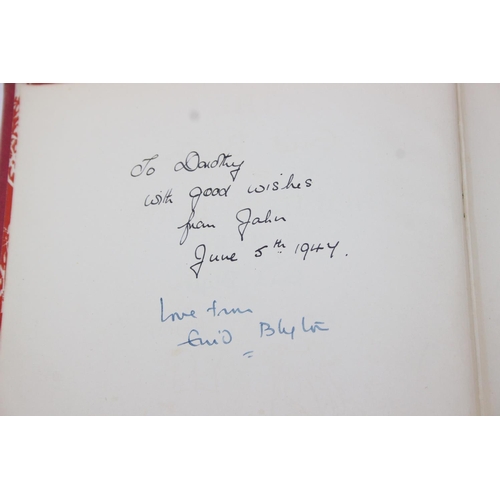 To Dorothy
with good wishes
from John
June 5th 1947.
Love from
Enid Blyton